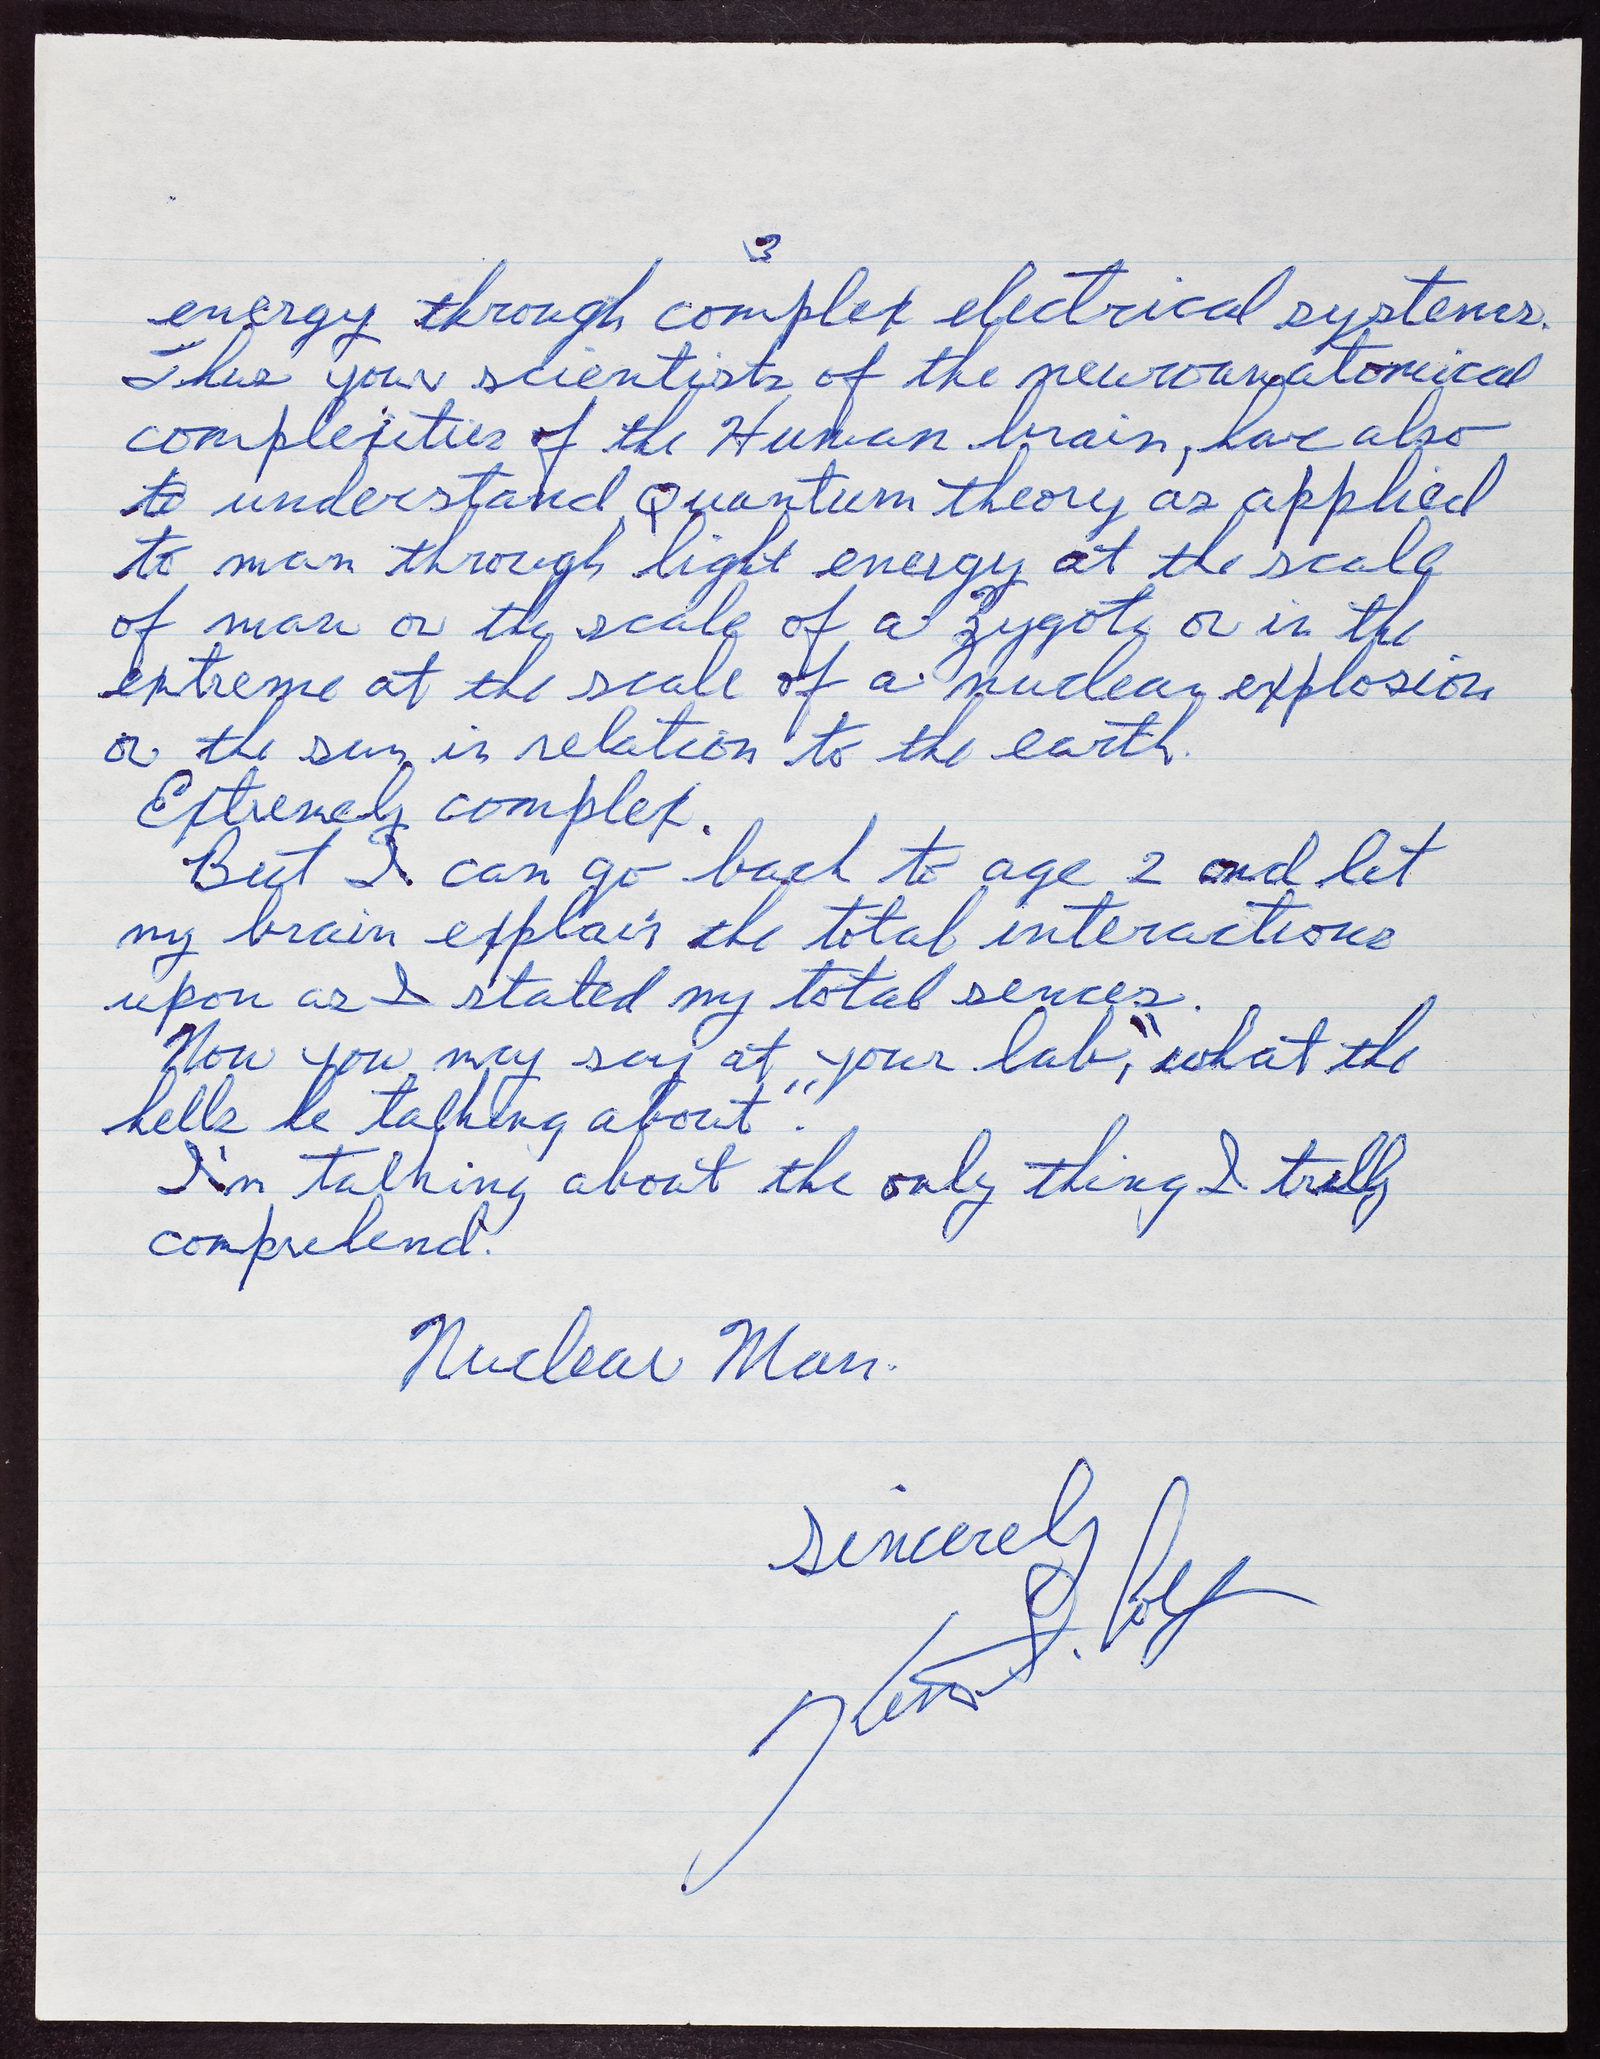 3
energy through complex electrical systems.
Thus your scientists of the neuroanatomical
complexities of the Human brain, have also
to understand Quantum theory as applied
to man through light energy at the scale
of man or the scale of a zygote or in the
extreme at the scale of a nuclear explosion
or the sun in relation to the earth.
Extremely complex.
But I can go back to age 2 and let
my brain explain the total interactions
upon as I stated my total sences.
Now you may say at your lab, "what the
hells he talking about".
I'm talking about the only thing I truly
comprehend.
Nuclear Man.
Sincerely